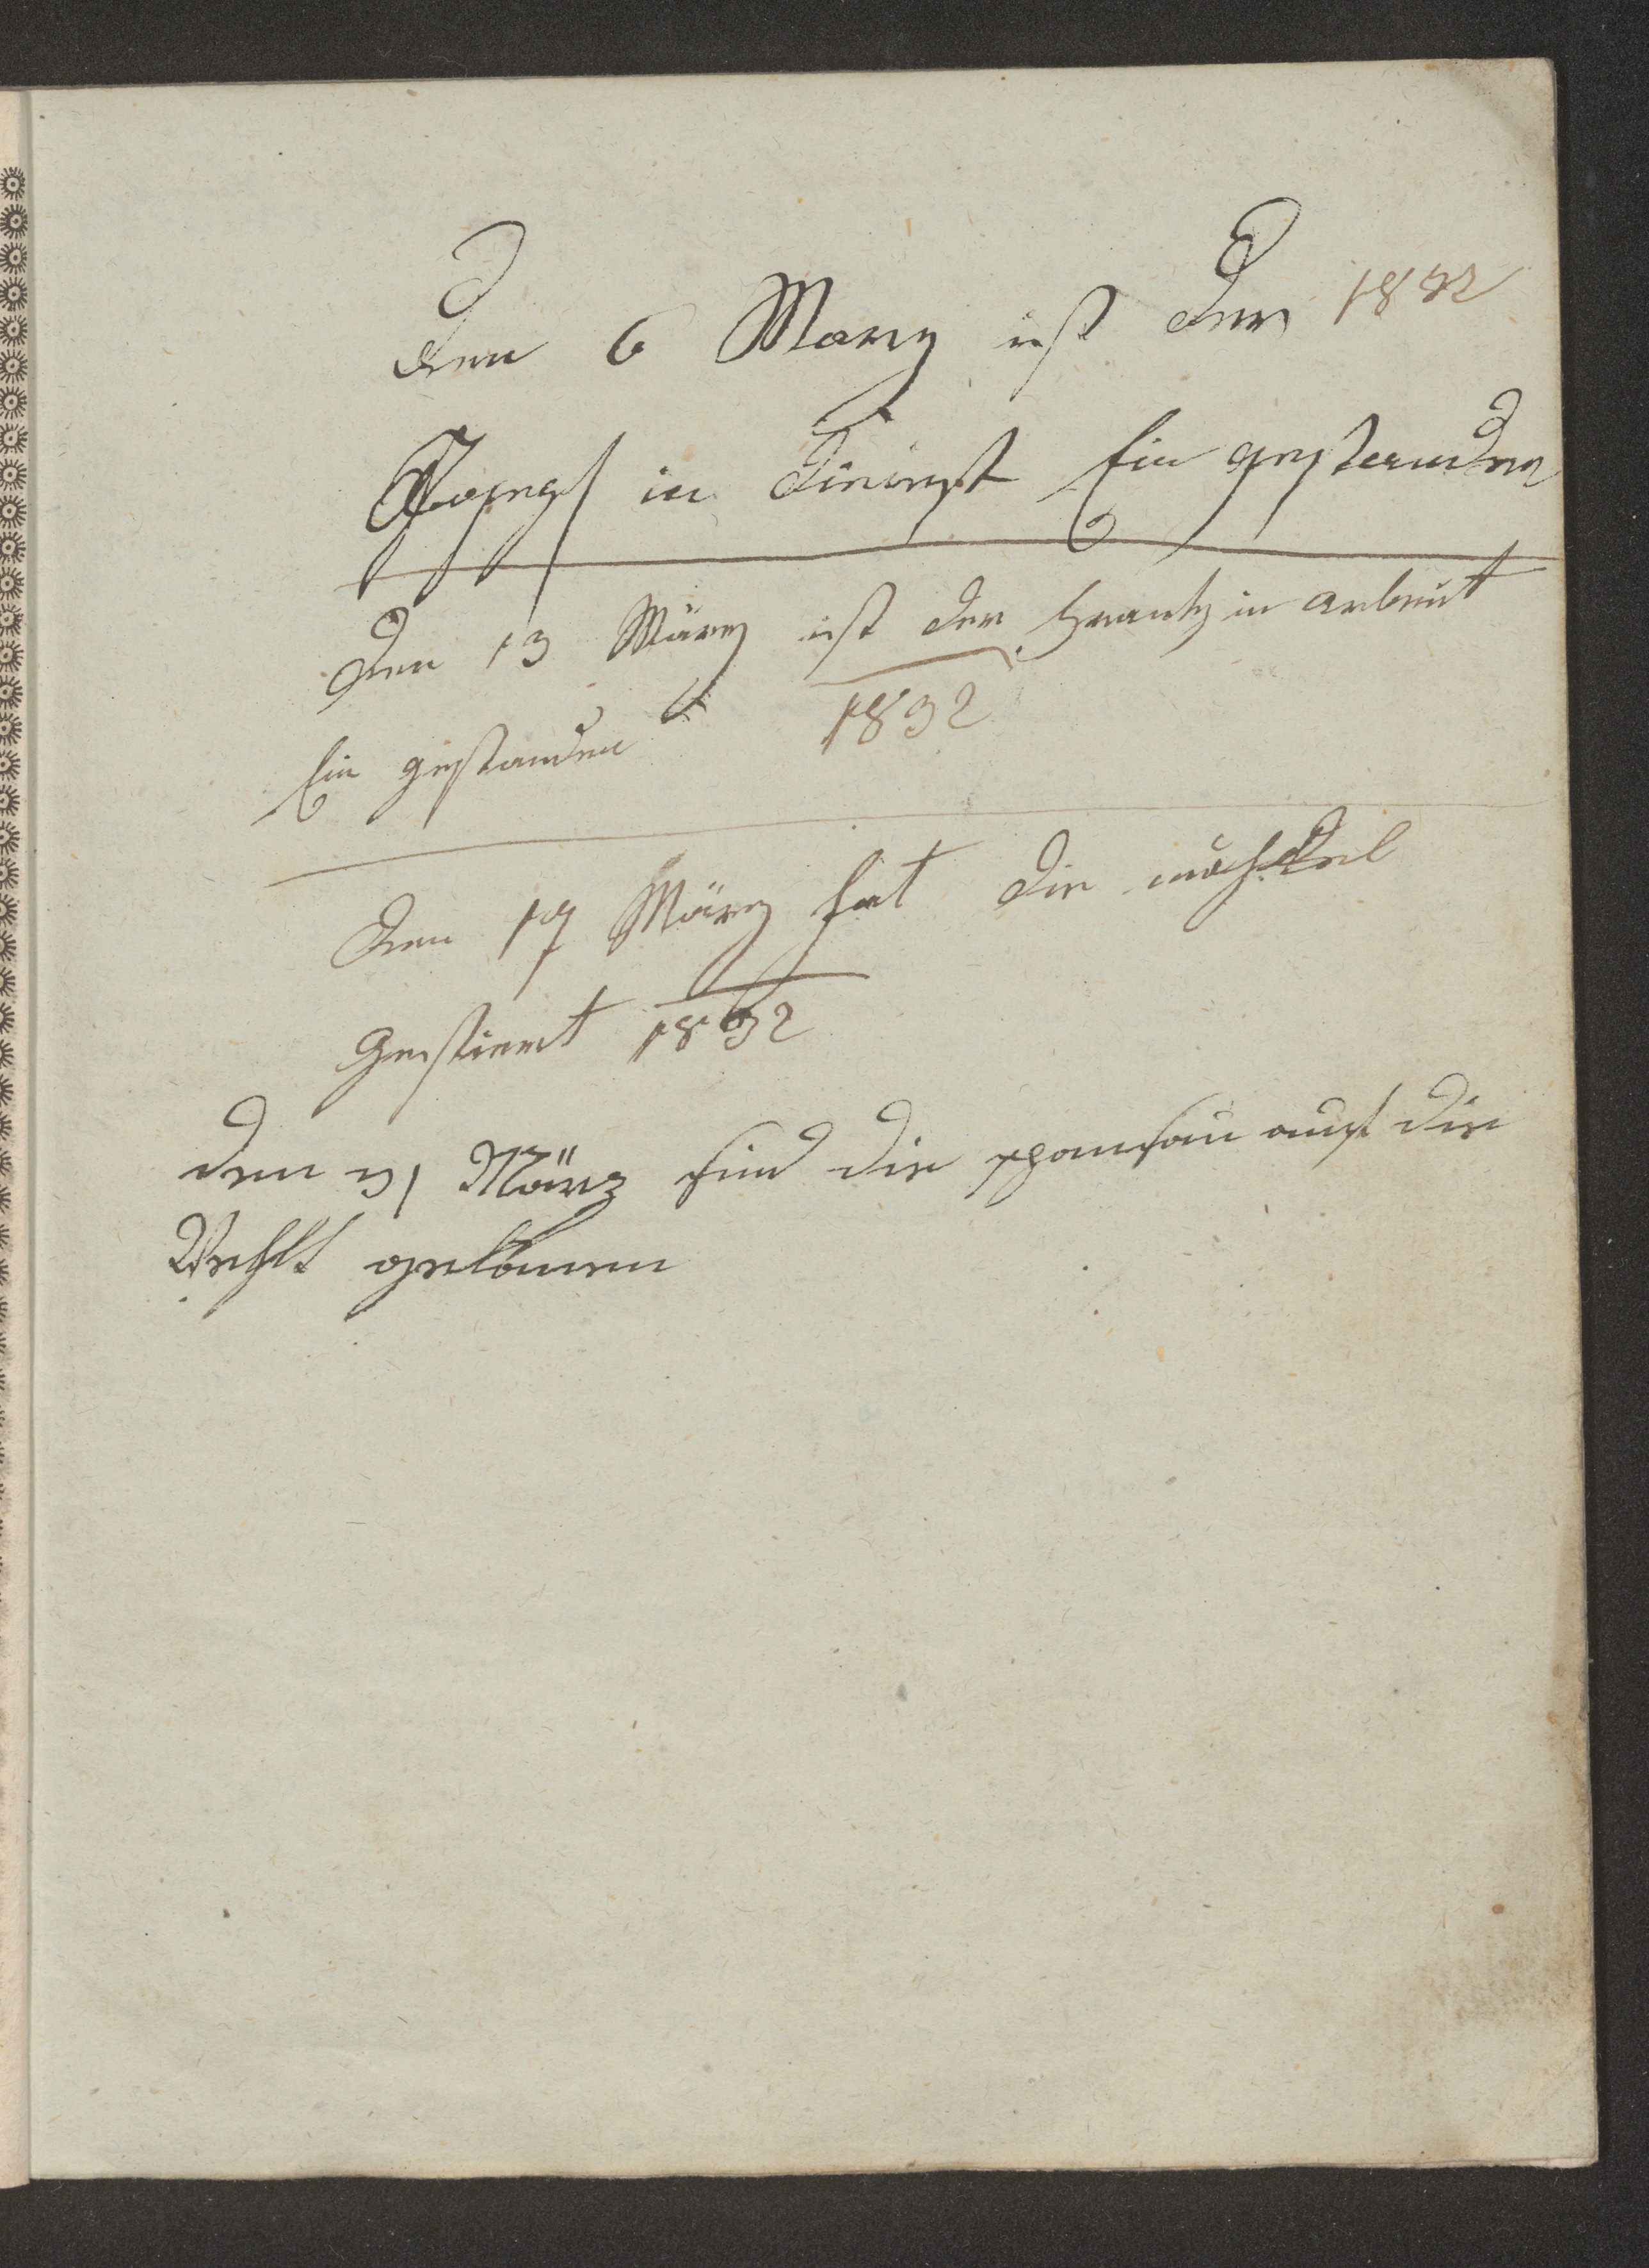 den 6 März ist der 1832
Joseph in Dienst Ein gestanden
den 13 März ist der Frantz in arbeit
Ein gestanden 1832
den 17 März hat die
1832
den 21 März sind die auf die
Wehlt gekomen